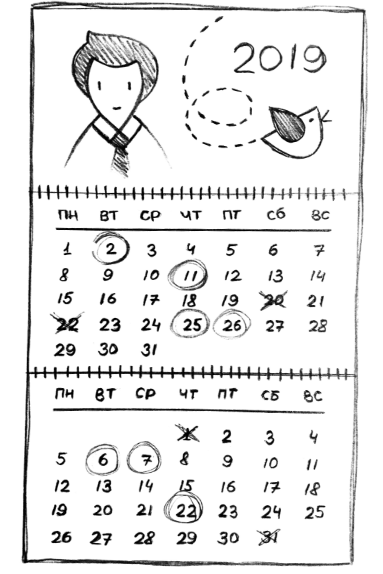 2019
ПН ВТ СР ЧТ ПТ СБ ВС
1 2 3 4 5 6 7
8 9 10 11 12 13 14
15 16 17 18 19 20 21
22 23 24 25 26 27 28
29 30 31
ПН ВТ СР ЧТ ПТ СБ ВС
1 2 3 4
5 6 7 8 9 10 11
12 13 14 15 16 17 18
19 20 21 22 23 24 25
26 27 28 29 30 31